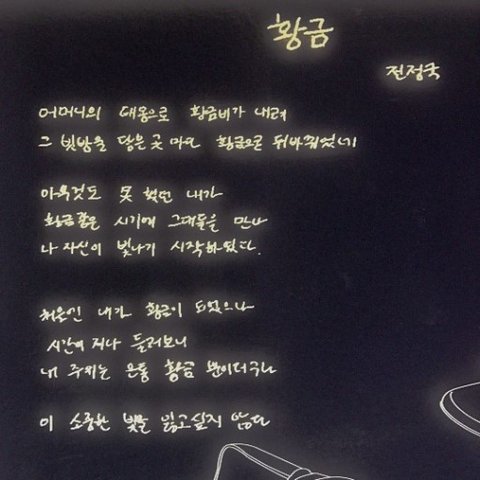 황금
전정국
어머니의 태몽으로 황금비가 내려
그 빗방울 닿은 곳 마다 황금으로 뒤바뀌었네
아무것도 못 했던 내가
황금 같은 시기에 그대들을 만나
나 자신이 빛나기 시작하였다.
처음인 내가 황금이 되었으나
시간이 지나 둘러보니
내 주위는 온통 황금 뿐이더구나
이 소중한 빛을 잃고싶지 않다